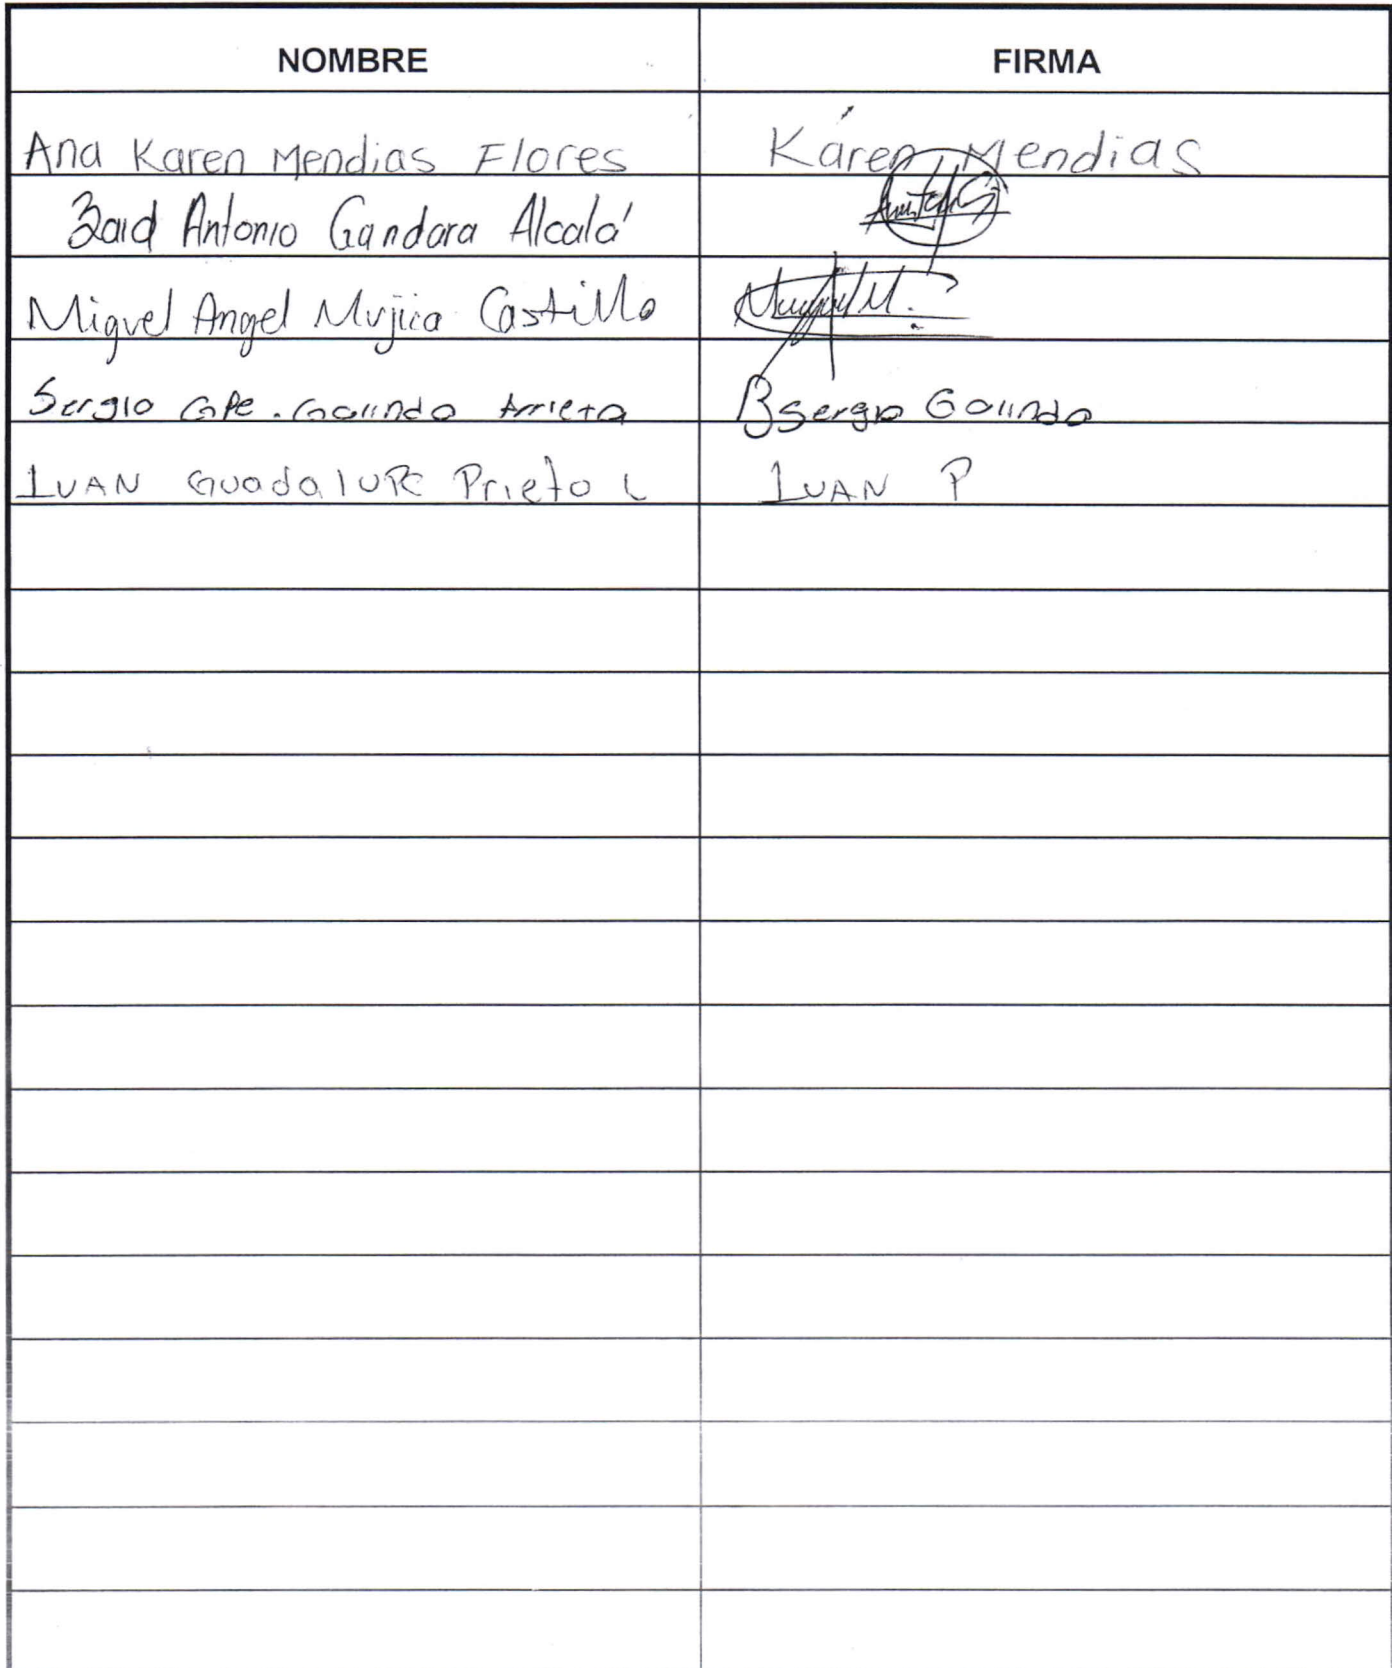 NOMBRE FIRMA
Ana Karen Mendias Flores Káren Mendias
Zaid Antonio Gandara Alcalá
Miguel Angel Mujica Castillo
Sergio Gpe. Galindo Arrieta Sergio Galindo
IVAN Guadalupe Prieto L IVAN P